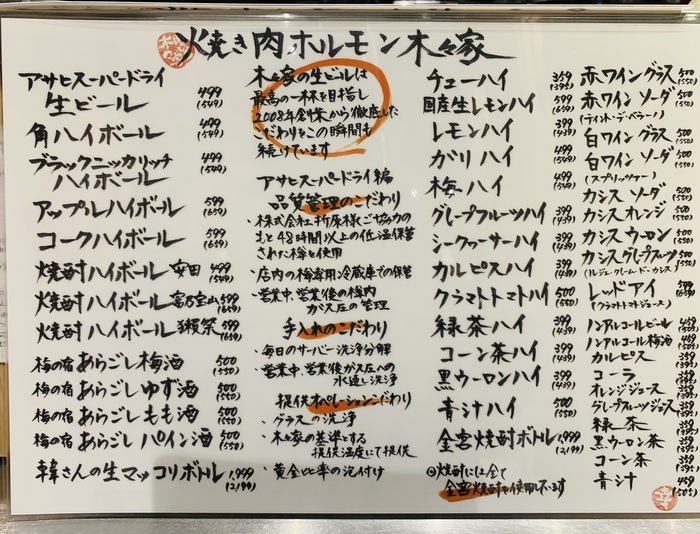 火焼き肉ホルモン木々家
アサヒスーパードライ
生ビール 499 (549)
角ハイボール 499 (549)
ブラックニッカリッチ
ハイボール 499 (549)
アップルハイボール 599 (659)
コークハイボール 599 (659)
焼酎ハイボール 安田 499 (549)
焼酎ハイボール 富乃宝山 599 (659)
焼酎ハイボール 599 (659)
梅の宿 あらごし梅酒 500 (550)
梅の宿 あらごしゆず酒 500 (550)
梅の宿 あらごしもも酒 500 (550)
梅の宿 あらごしパイン酒 500 (550)
韓さんの生マッコリボトル 1,999 (2199)
木々家の生ビールは
最高の一杯を目指し
2008年創業から徹底した
こだわりをこの瞬間も
続けています
アサヒスーパードライ編
品質管理のこだわり
・株式会社折原様ご協力の
もと48時間以上の低温保管
された樽を使用
・店内の樽専用冷蔵庫での保管
・営業中、営業後の樽内
ガス圧の管理
手入れのこだわり
・毎日のサーバー洗浄分解
・営業中、営業後ガス圧への
水通し洗浄
提供オペレーションこだわり
・グラスの洗浄
・木々家の基準とする
提供温度にて提供
・黄金比率の泡付け
チューハイ 359 (395)
国産生レモンハイ 599 (659)
レモンハイ 399 (439)
ガリハイ 499 (549)
梅ハイ 499 (549)
グレープフルーツハイ 399 (439)
シークヮーサーハイ 399 (439)
カルピスハイ 399 (439)
クラマトトマトハイ 500 (550)
緑茶ハイ 399 (439)
コーン茶ハイ 399 (439)
黒ウーロンハイ 399 (439)
青汁ハイ 500 (550)
金宮焼酎ボトル 1,999 (2,199)
◎焼酎には全て
金宮焼酎を使用しています
赤ワイン グラス 500 (550)
赤ワイン ソーダ 500 (550)
(ティント・デ・ベラーノ)
白ワイン グラス 500 (550)
白ワイン ソーダ 500 (550)
(スプリッツァー)
カシス ソーダ 500 (550)
カシス オレンジ 500 (550)
カシス ウーロン 500 (550)
カシス グレープフルーツ 500 (550)
(ルジェ クレーム・ド・カシス)
レッドアイ 599 (659)
(クラマトトマトジュース)
ノンアルコールビール 459 (505)
ノンアルコール梅酒 459 (505)
カルピス 359 (395)
コーラ 359 (395)
オレンジジュース 359 (395)
グレープフルーツジュース 359 (395)
緑茶 359 (395)
黒ウーロン茶 359 (395)
コーン茶 359 (395)
青汁 459 (505)